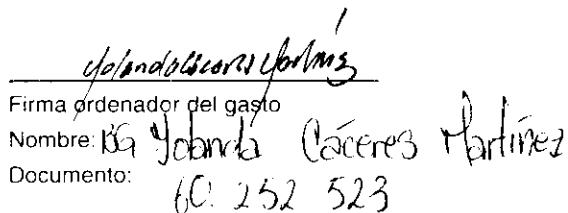 Yolanda Cáceres Martínez
Firma ordenador del gasto
Nombre: BG Yolanda Cáceres Martínez
Documento:
60. 252 523